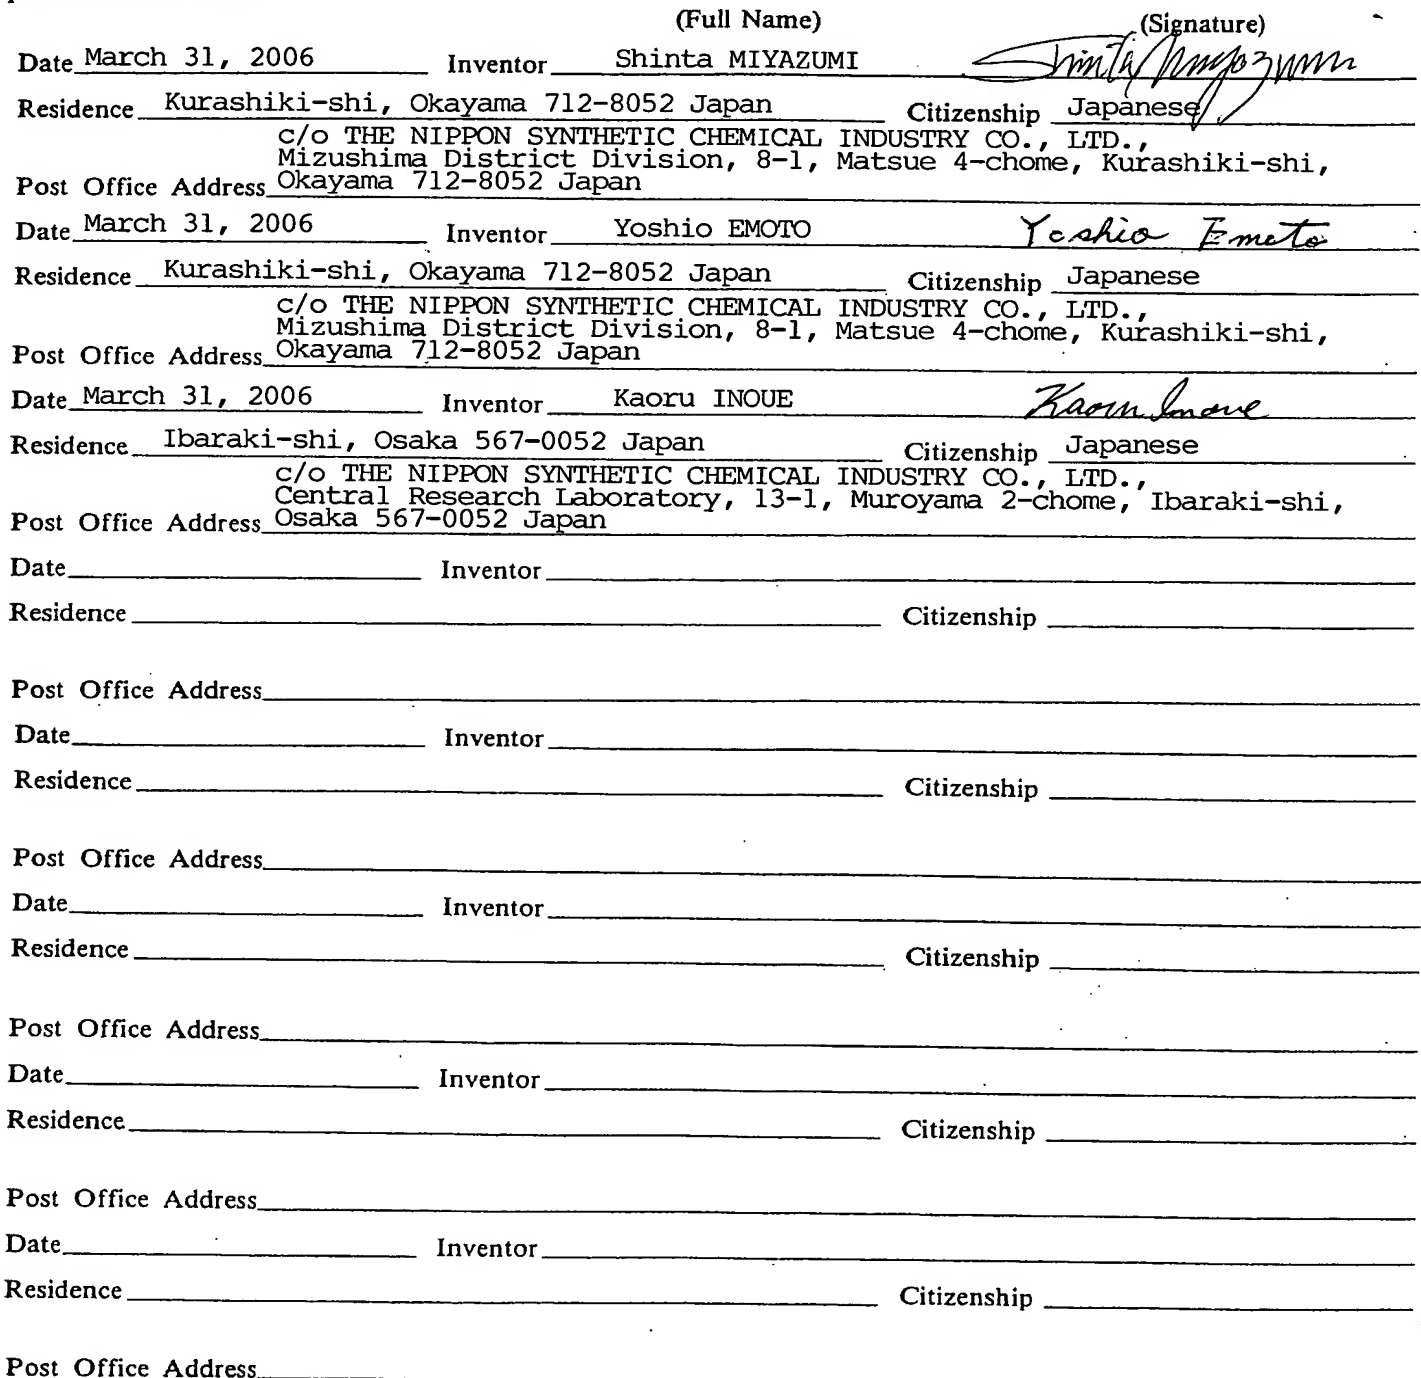 (Full Name) (Signature)
Date March 31, 2006 Inventor Shinta MIYAZUMI Shinta Miyazumi
Residence Kurashiki-shi, Okayama 712-8052 Japan Citizenship Japanese
c/o THE NIPPON SYNTHETIC CHEMICAL INDUSTRY CO., LTD.,
Mizushima District Division, 8-1, Matsue 4-chome, Kurashiki-shi,
Post Office Address Okayama 712-8052 Japan
Date March 31, 2006 Inventor Yoshio EMOTO Yoshio Emoto
Residence Kurashiki-shi, Okayama 712-8052 Japan Citizenship Japanese
c/o THE NIPPON SYNTHETIC CHEMICAL INDUSTRY CO., LTD.,
Mizushima District Division, 8-1, Matsue 4-chome, Kurashiki-shi,
Post Office Address Okayama 712-8052 Japan
Date March 31, 2006 Inventor Kaoru INOUE Kaoru Inoue
Residence Ibaraki-shi, Osaka 567-0052 Japan Citizenship Japanese
c/o THE NIPPON SYNTHETIC CHEMICAL INDUSTRY CO., LTD.,
Central Research Laboratory, 13-1, Muroyama 2-chome, Ibaraki-shi,
Post Office Address Osaka 567-0052 Japan
Date Inventor
Residence Citizenship
Post Office Address
Date Inventor
Residence Citizenship
Post Office Address
Date Inventor
Residence Citizenship
Post Office Address
Date Inventor
Residence Citizenship
Post Office Address
Date Inventor
Residence Citizenship
Post Office Address